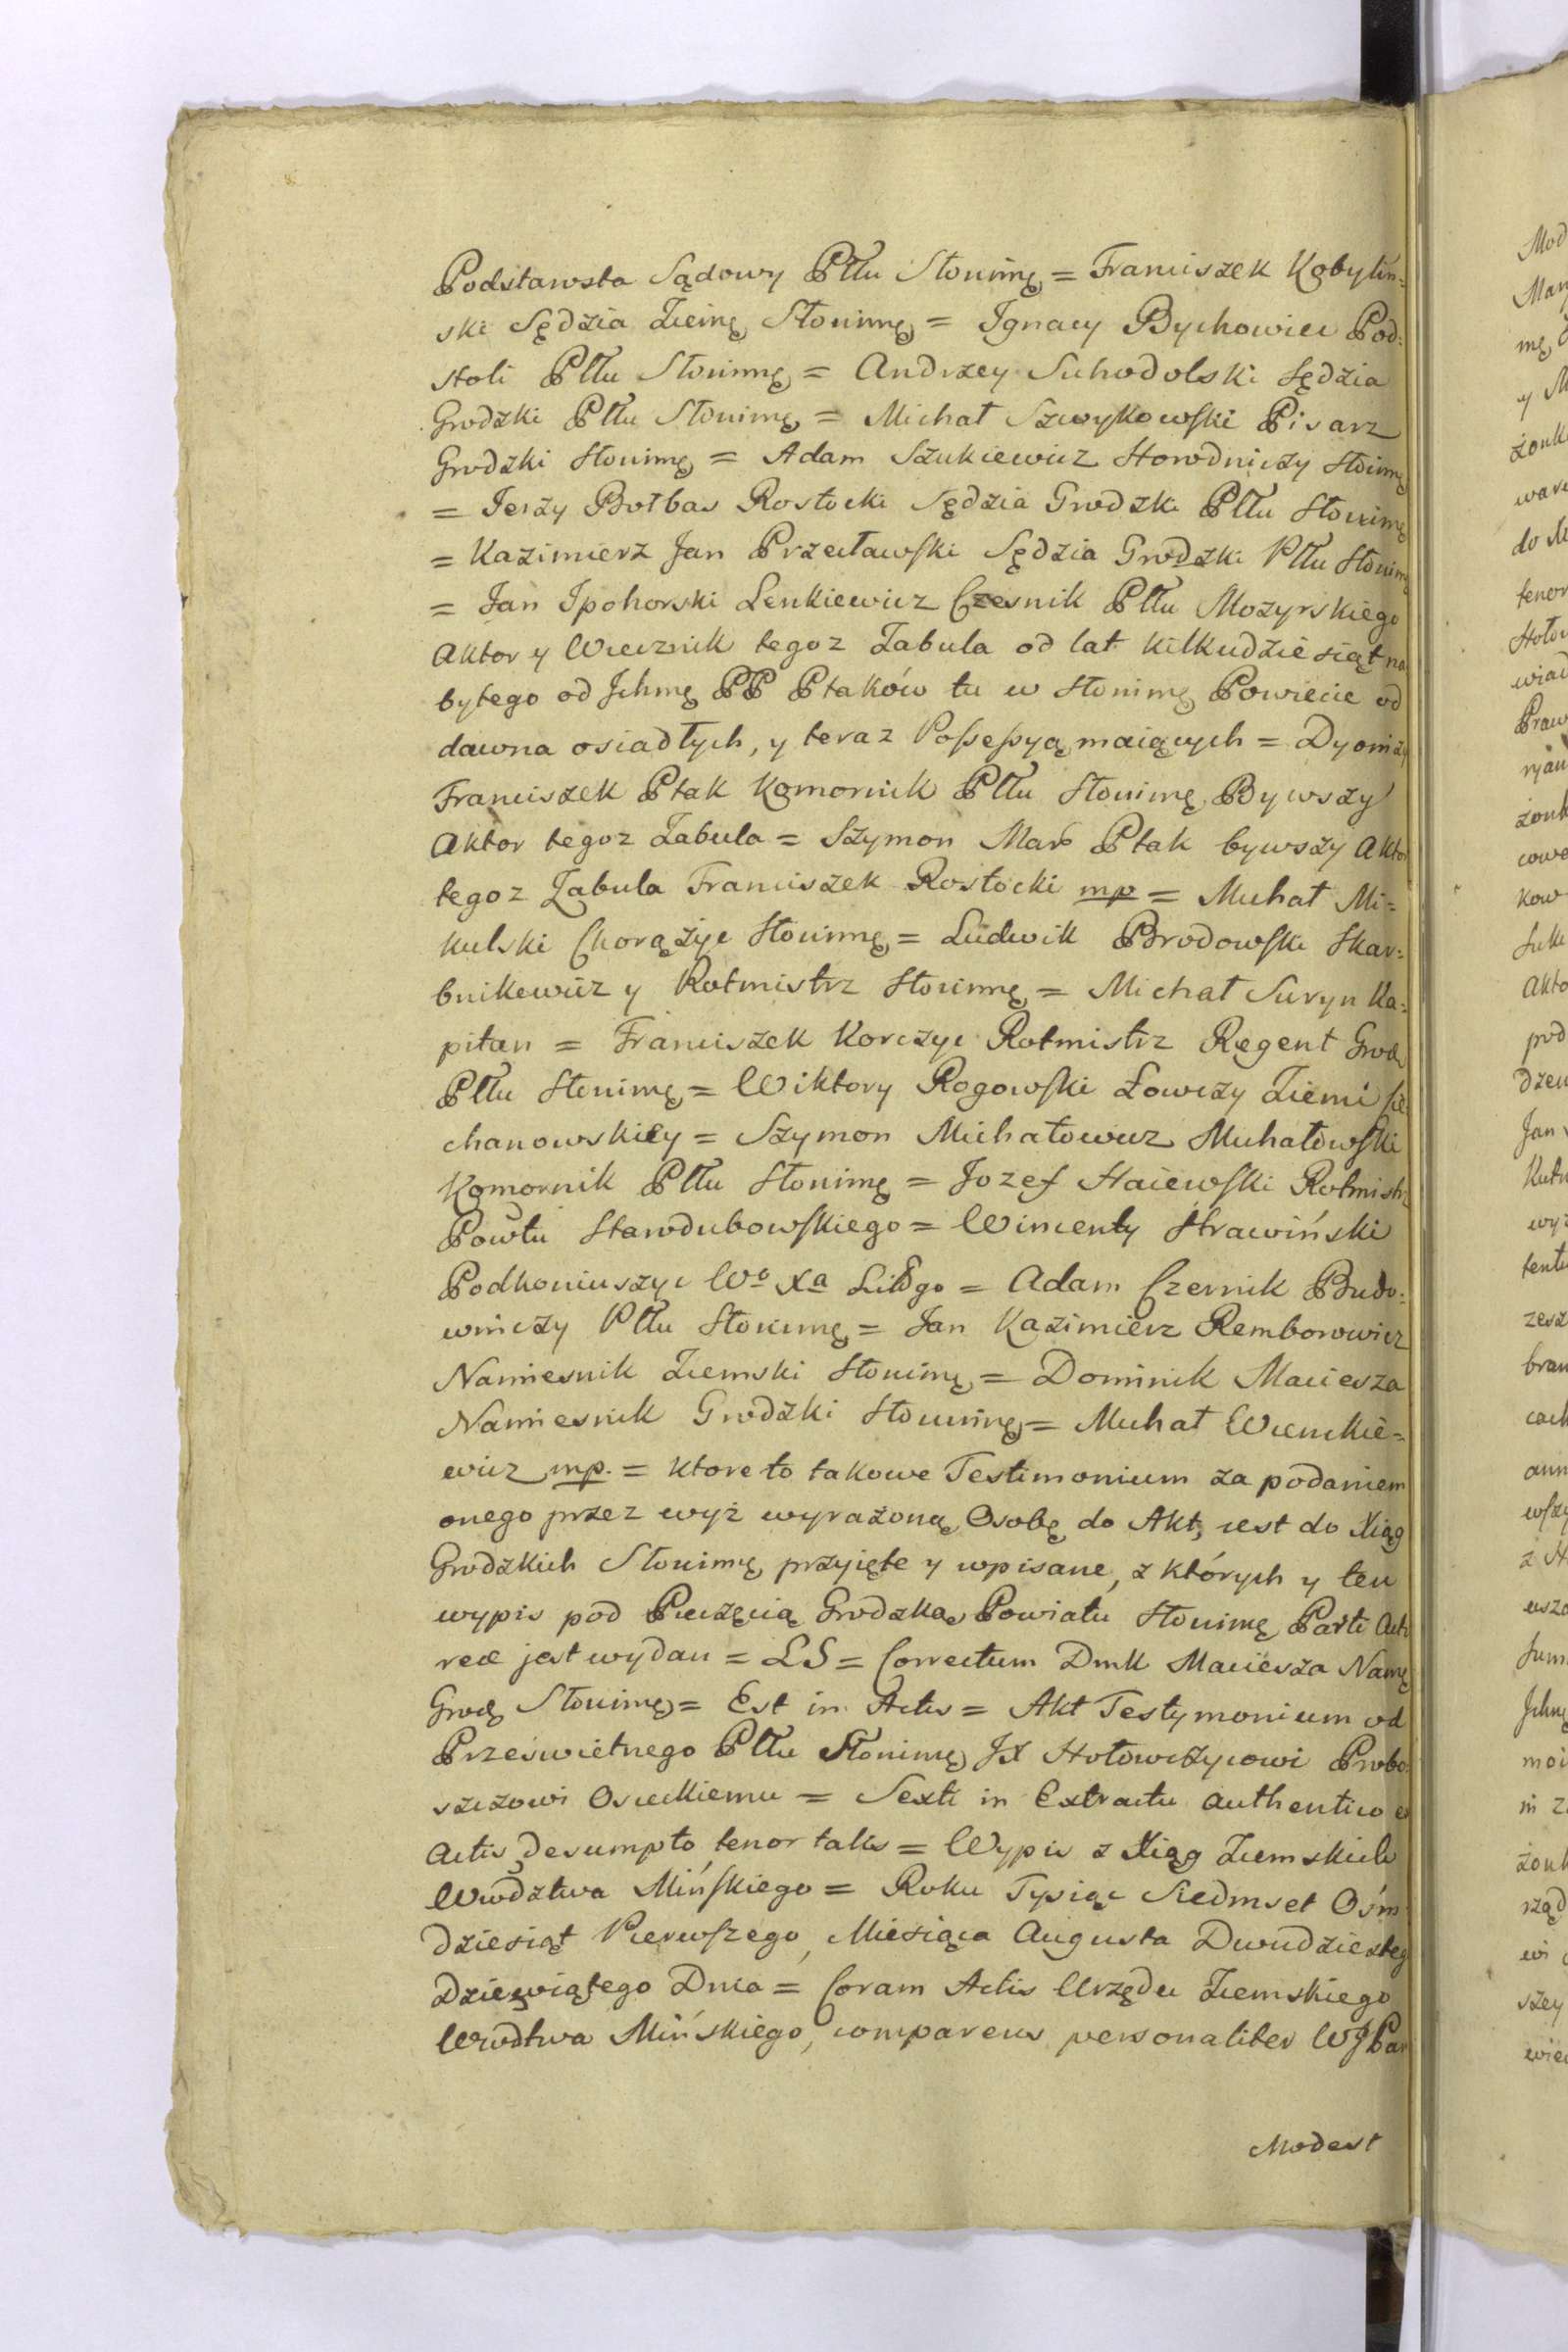 Podstarosta Sądowy Pttu Słonimę = Franciszek Kobylin=
ski Sędzia Ziemę Słonimę = Ignacy Bychowiec Pod:
stoli Pttu Słonimę = Andrzey Suchodolski Sędzia
Grodzki Pttu Słonimę = Michał Szwykowski Pisarz
Grodzki Słonimę = Adam Szukiewicz Horodniczy Słonimę
= Jerzy Bołbas Rostocki Sędzia Grodzki Pttu Słonimę
= Kazimierz Jan Przecławski Sędzia Grodzki Pttu Słonimę
= Jan Ipohorski Lenkiewicz Czesnik Pttu Mozyrskiego
Aktor y Wieznik tegoz Zabula od lat kilkudziesiąt na
bytego od Jchmę PP Ptaków tu w Słonimę Powiecie od
dawna osiadłych, y teraz Possessyą maiących = Dyonizy
Franciszek Ptak Komornik Pttu Słonimę Bywszy
Aktor tegoz Zabula = Szymon Mar Ptak bywszy Aktor
tegoz Zabula Franciszek Rostocki mp = Michał Mi=
kulski Chorążyc Słonimę = Ludwik Brodowski Skar=
bnikewicz y Rotmistrz Słonimę = Michał Suryn Ka=
pitan = Franciszek Korczyc Rotmistrz Regent Grodę
Pttu Słonimę = Wiktory Rogowski Łowczy Ziemi Cie
chanowskiey = Szymon Michałowicz Michałowski
Komornik Pttu Słonimę = Jozef Haiewski Rotmistrz
Powtu Starodubowskiego = Wincenty Strawiński
Podkoniuszyc Wo Xa Littgo = Adam Czernik Budo=
wniczy Pttu Słonimę = Jan Kazimierz Remborowicz
Namiesnik Ziemski Słonimę = Dominik Maciesza
Namiesnik Grodzki Słonimę = Michał Wienckie=
wicz mp. = ktore to takowe Testimonium za podaniem
onego przez wyż wyrażoną Osobę do Akt, iest do Xiąg
Grodzkich Słonimę przyięte y wpisane, z których y ten
wypis pod Pieczęcią Grodzką Powiatu Słonimę Parti Acto
reæ jest wydan = LS = Correctum Dmk Maciesza Namę
Grodę Słonimę = Est in Actis = Akt Testymonium od
Prześwietnego Pttu Słonimę JX Hołowczycowi Probo=
szczowi Osieckiemu = Sexti in Extractu authentico ex
Actis desumpto, tenor talis = Wypis z Xiąg Ziemskich
Wwodztwa Mińskiego = Roku Tysiąc Siedmset Ośm
dziesiąt Pierwszego, Miesiąca Augusta Dwudziesteg
Dziewiątego Dnia = Coram Actis Urzędu Ziemskiego
Wwodtwa Mińskiego, comparens personaliter WJPan
Modest